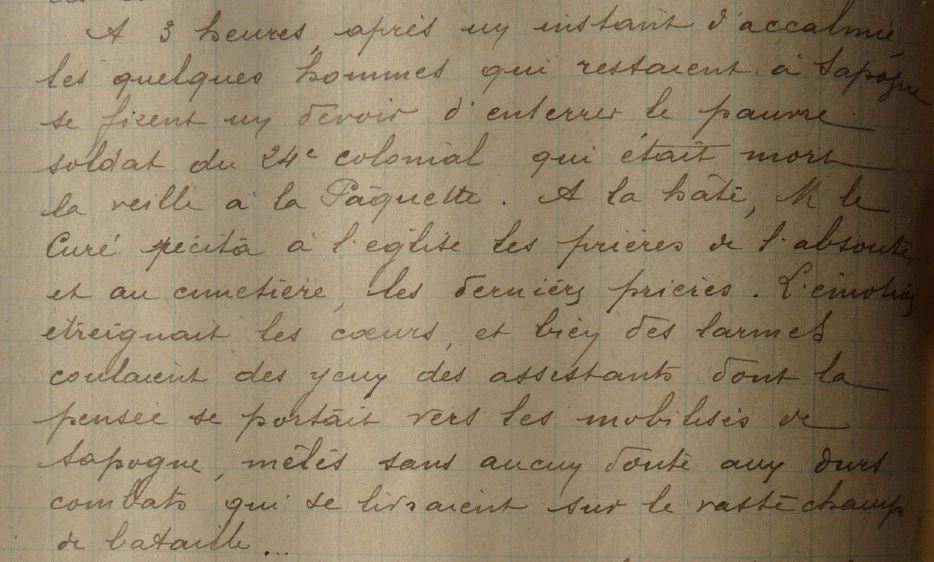 A 3 heures, après un instant d'accalmie,
les quelques hommes qui restaient à Sapogne
se firent un devoir d'enterrer le pauvre
soldat du 24e colonial qui était mort
la veille à la Pâquette. A la hâte, M le
Curé récita à l'église les prières de l'absoute,
et au cimetière, les dernièrs prières. L'émotion
etreignait les cœurs, et bien des larmes
coulaient des yeux des assistants dont la
pensée se portait vers les mobilisés de
Sapogne, mêlés sans aucun doute aux durs
combats qui se livraient sur le vaste champ
de bataille...